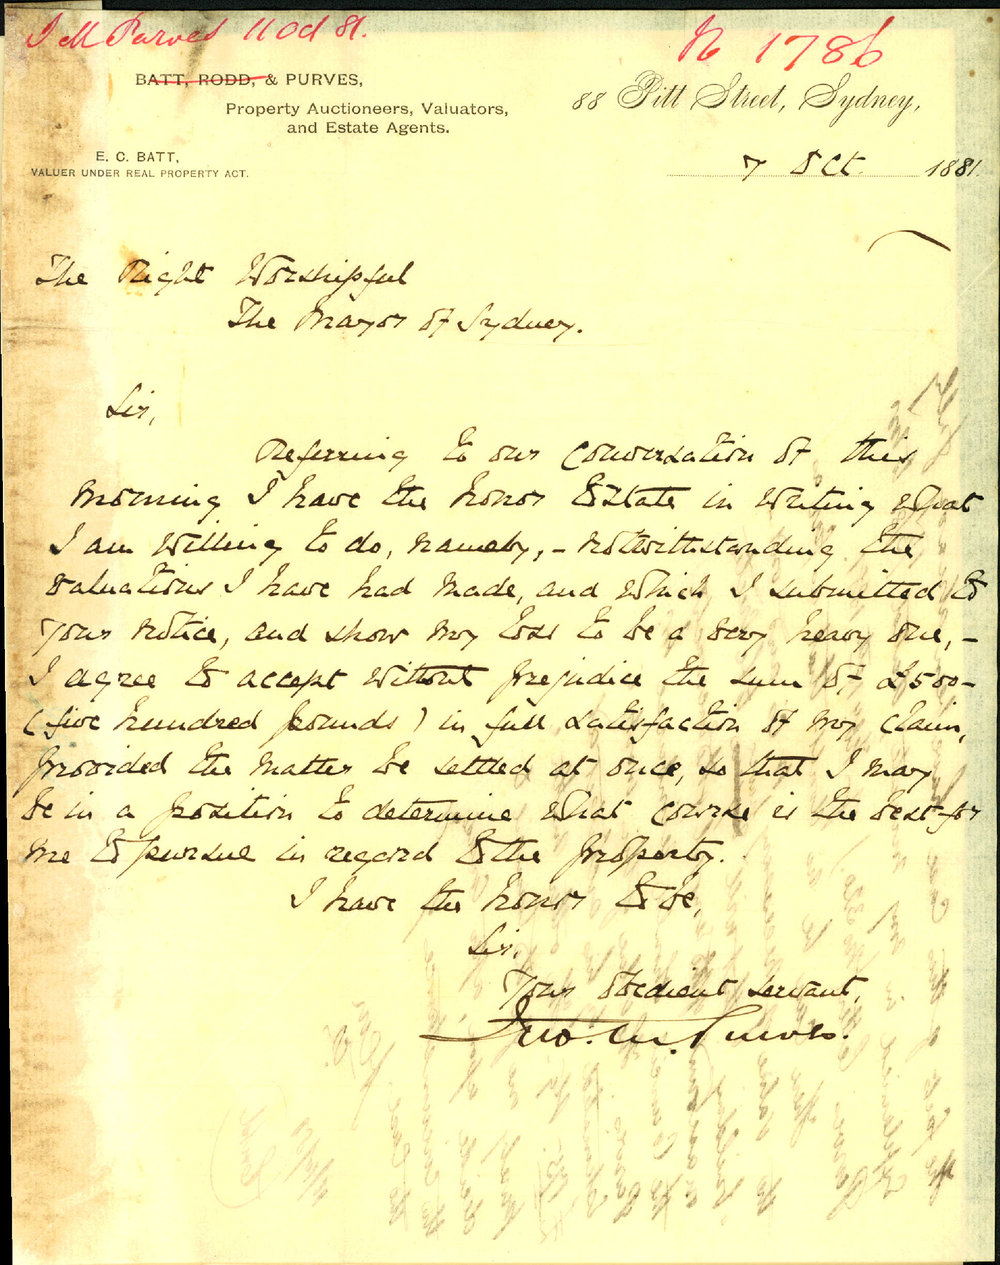 J M Purves 11 Oct 81.
No 1786
BATT, RODD, & PURVES,
Property Auctioneers, Valuators,
and Estate Agents.
88 Pitt Street, Sydney,
E. C. BATT,
VALUER UNDER REAL PROPERTY ACT.
7 Oct. 1881.
The Right Worshipful
The Mayor of Sydney.
Sir,
Referring to our conversation of this
morning I have the honor to state in writing what
I am willing to do, namely, - notwithstanding the
valuations I have had made, and which I submitted to
your notice, and show my loss to be a very heavy one, -
I agree to accept without prejudice the sum of £500-
(five hundred pounds) in full satisfaction of my claim,
provided the matter be settled at once, so that I may
be in a position to determine what course is the best for
me to pursue in regard to the property.
I have the honor to be,
Sir,
Your obedient servant,
Jno. M. Purves.